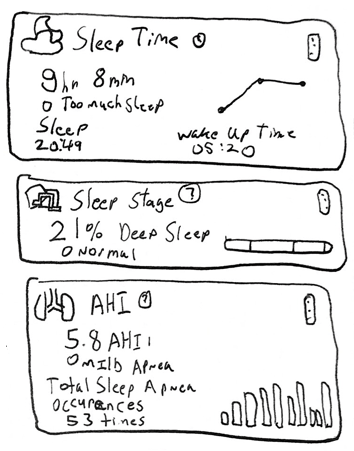 Sleep Time ?
9hr 8mm
Too much Sleep
Sleep
20:49
Wake Up Time
05:20
Sleep Stage ?
21% Deep Sleep
Normal
AHI ?
5.8 AHI
Mild Apnea
Total Sleep Apnea
Occurances
53 times